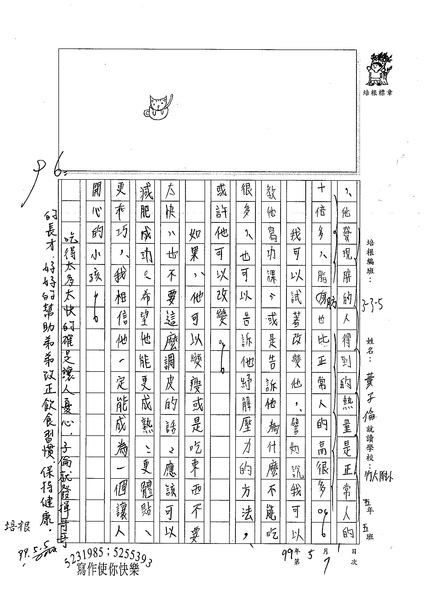 培根標章
培根編班：3-3-5
姓名：黃子倫
就讀學校：
五年 五班
99年 5月
第 1 頁次
，他發現胖的人得到的熱量是正常人的
十倍多，脂肪也比正常人的高很多。96
我可以試著改變他，譬如說我可以
教他寫功課，或是告訴他，為什麼不能吃
很多，也可以告訴他紓解壓力的方法，
或許他可以改變。96
如果，他可以變瘦或是吃東西不要
太快，也不要這麼調皮的話，應該可以
減肥成功，希望他能更成熟、更體貼、
更乖巧，我相信他一定能成為一個讓人
開心的小孩。96
96
吃得太多太快的確是讓人憂心，子倫就發揮哥哥
的長才，好好的幫助弟弟改正飲食習慣，保持健康。
培根
99.5.5
5231985；5255393
寫作使你快樂